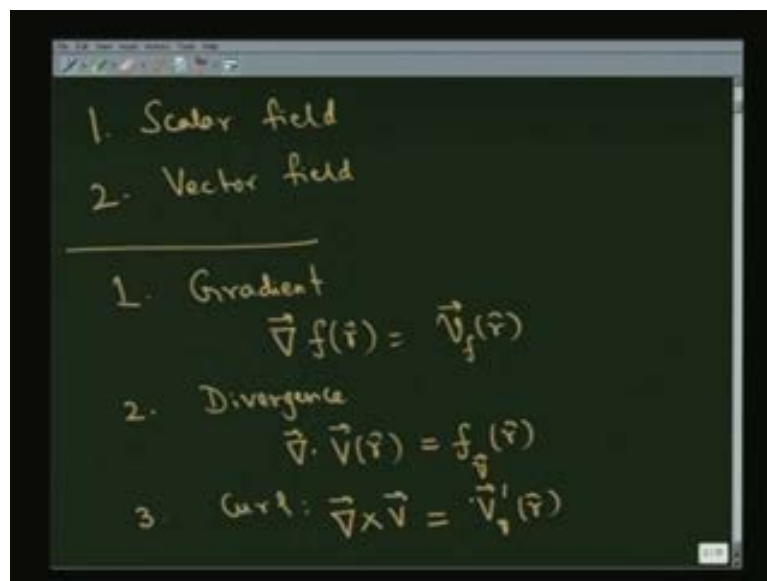 1. Scalar field
2. Vector field
1. Gradient
∇⃗ f(r⃗) = V⃗_f(r⃗)
2. Divergence
∇⃗ · V⃗(r⃗) = f_v⃗(r⃗)
3 Curl: ∇⃗ × V⃗ = V⃗'_v(r⃗)